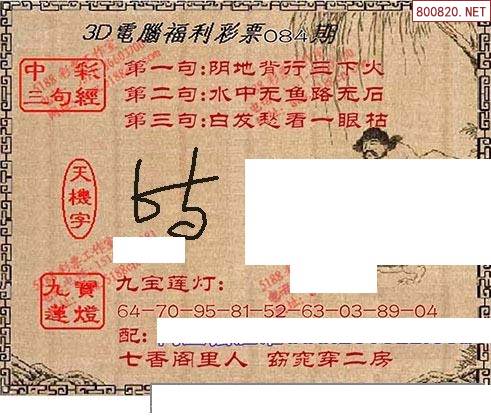 800820.NET
3D電腦福利彩票084期
中彩三句經
第一句:阴地背行三下火
第二句:水中无鱼路无石
第三句:白发愁看一眼枯
天機字
九寶蓮燈
九宝莲灯:
64-70-95-81-52-63-03-89-04
配:
七香阁里人 窈窕穿二房